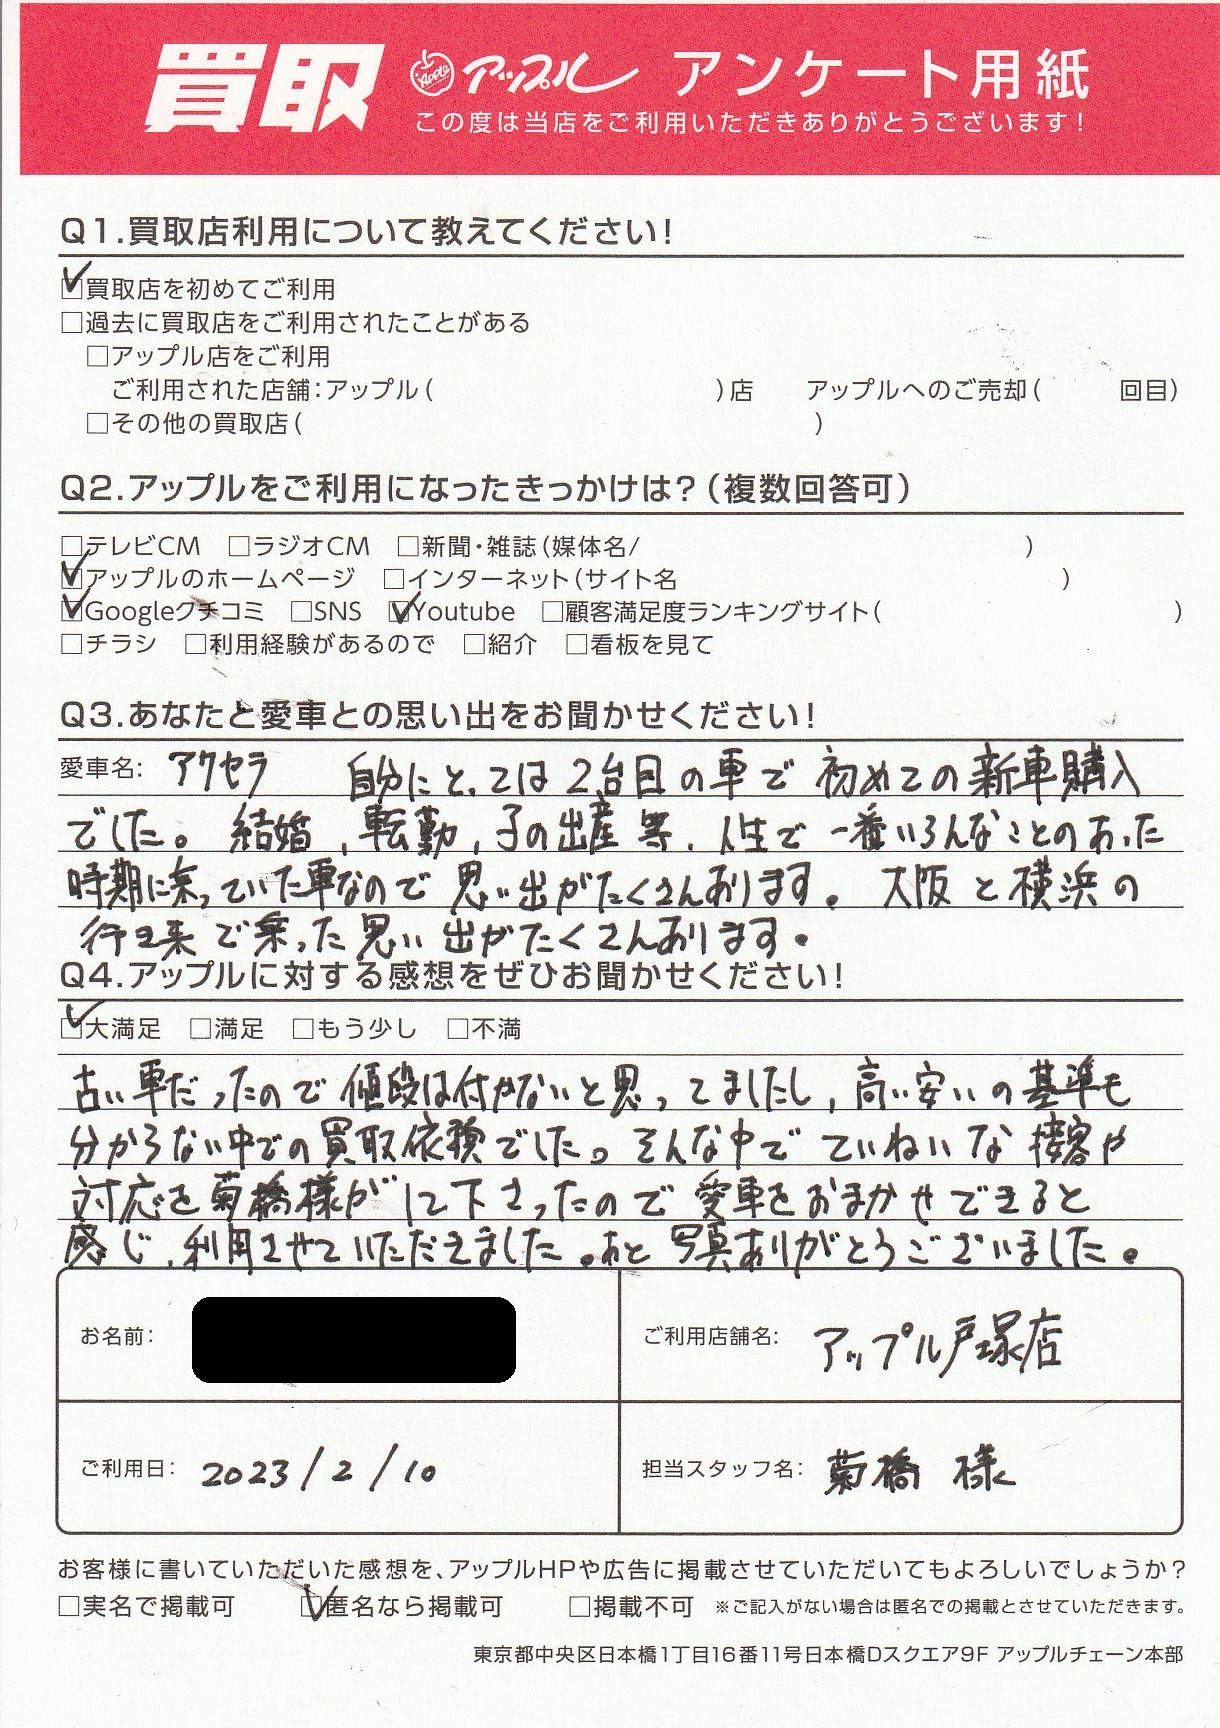 買取 アップル アンケート用紙
この度は当店をご利用いただきありがとうございます!
Q1.買取店利用について教えてください!
☑買取店を初めてご利用
□過去に買取店をご利用されたことがある
□アップル店をご利用
ご利用された店舗:アップル( )店 アップルへのご売却( 回目)
□その他の買取店( )
Q2.アップルをご利用になったきっかけは?(複数回答可)
□テレビCM □ラジオCM □新聞・雑誌(媒体名/ )
☑アップルのホームページ □インターネット(サイト名 )
☑Googleクチコミ □SNS ☑Youtube □顧客満足度ランキングサイト( )
□チラシ □利用経験があるので □紹介 □看板を見て
Q3.あなたと愛車との思い出をお聞かせください!
愛車名: アクセラ 自分にとっては2台目の車で初めての新車購入
でした。結婚、転勤、子の出産等、人生で一番いろんなことのあった
時期に乗っていた車なので思い出がたくさんあります。大阪と横浜の
行き来で乗った思い出がたくさんあります。
Q4.アップルに対する感想をぜひお聞かせください!
☑大満足 □満足 □もう少し □不満
古い車だったので値段は付かないと思ってましたし、高い安いの基準も
分からない中での買取依頼でした。そんな中でていねいな接客や
対応を菊橋様がして下さったので愛車をおまかせできると
感じ、利用させていただきました。あと写真ありがとうございました。
お名前: ご利用店舗名: アップル戸塚店
ご利用日: 2023/2/10 担当スタッフ名: 菊橋 様
お客様に書いていただいた感想を、アップルHPや広告に掲載させていただいてもよろしいでしょうか?
□実名で掲載可 ☑匿名なら掲載可 □掲載不可 ※ご記入がない場合は匿名での掲載とさせていただきます。
東京都中央区日本橋1丁目16番11号日本橋Dスクエア9F アップルチェーン本部